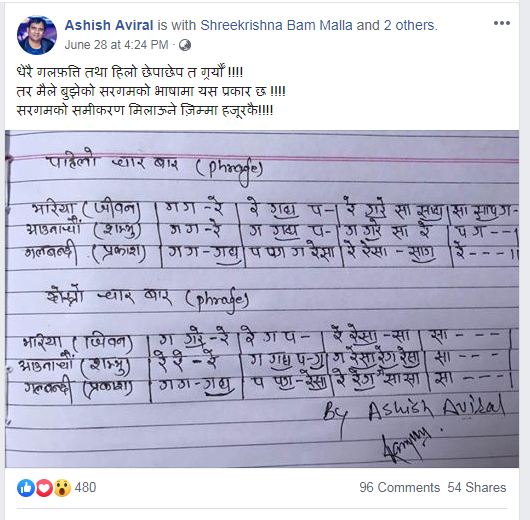 Ashish Aviral is with Shreekrishna Bam Malla and 2 others.
June 28 at 4:24 PM
धेरै गलफ़त्ति तथा हिलो छेपाछेप त गर्र्यौं !!!!
तर मैले बुझेको सरगमको भाषामा यस प्रकार छ !!!!
सरगमको समीकरण मिलाऊने ज़िम्मा हजूरकै!!!!
पहिलो चार बार (phrage)
भरिया (जीवन) | ग ग - रे | रे गद्य प - | रे गरे सा साध्य | सा सापग -
(शम्भु) | ग ग - रे | ग गद्य प - | ग गरे सा रे | प ग - - |
गलबन्दी (प्रकाश) | ग ग - गद्य | प पग ग रेसा | रे रेसा - साग | रे - - - ||
दोस्रो चार बार (phrage)
भरिया (जीवन) | ग गरे - रे | रे ग प - | रे रेसा - सा | सा - - - |
(शम्भु) | रे रे - रे | ग गद्य प - ग | ग रेसा रेग रेसा | सा - - - |
गलबन्दी (प्रकाश) | ग ग - गद्य | प पग - रेसा | रे रेग सासा | सा - - - |
By Ashish Aviral
480
96 Comments 54 Shares